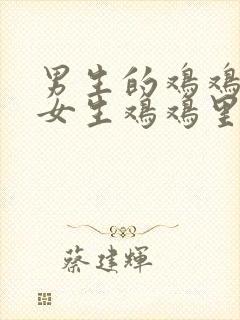 男生的鸡鸡
女生鸡鸡里
蔡建輝